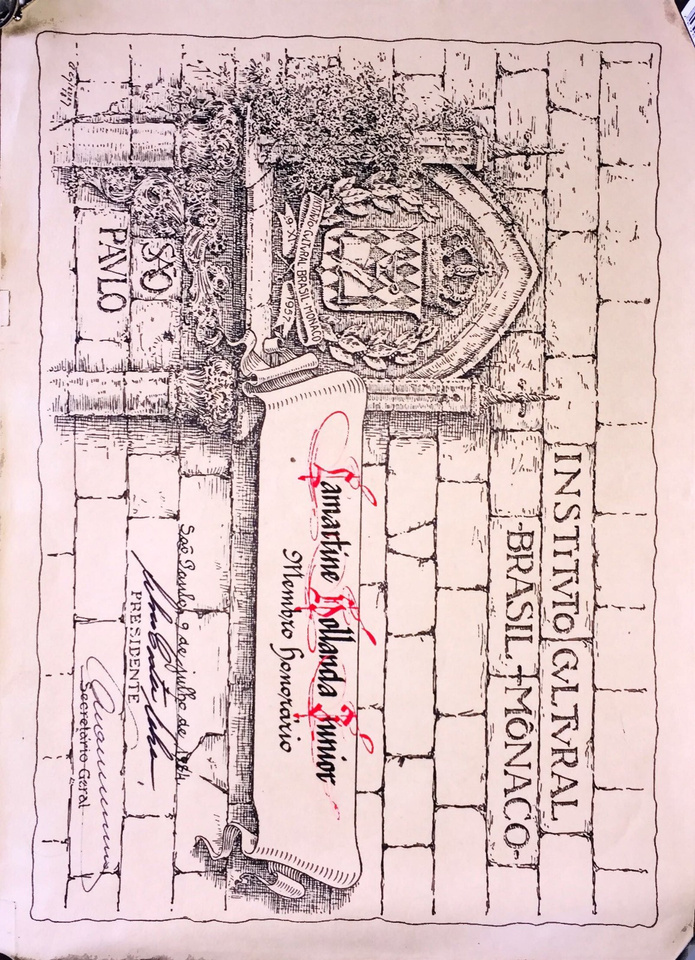 INSTITVTO CVLTVRAL
-BRASIL-MÔNACO-
INSTITUTO CULTURAL BRASIL MONACO
1957
Lamartine Hollanda Júnior
Membro Honorário
SÃO
PAVLO
São Paulo, 9 de julho de 1984
PRESIDENTE
Secretário Geral